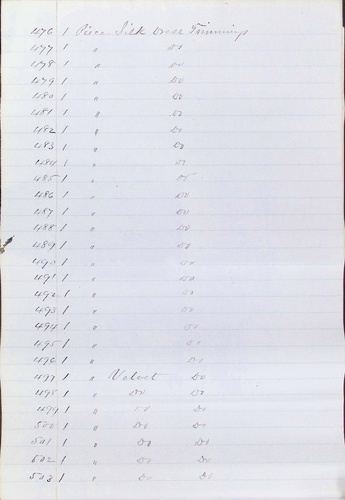 476 1 Piece Silk Dress Trimmings
477 1 " Do
478 1 " Do
479 1 " Do
480 1 " Do
481 1 " Do
482 1 " Do
483 1 " Do
484 1 " Do
485 1 " Do
486 1 " Do
487 1 " Do
488 1 " Do
489 1 " Do
490 1 " Do
491 1 " Do
492 1 " Do
493 1 " Do
494 1 " Do
495 1 " Do
496 1 " Do
497 1 " Velvet Do
498 1 " Do Do
499 1 " Do Do
500 1 " Do Do
501 1 " Do Do
502 1 " Do Do
503 1 " Do Do